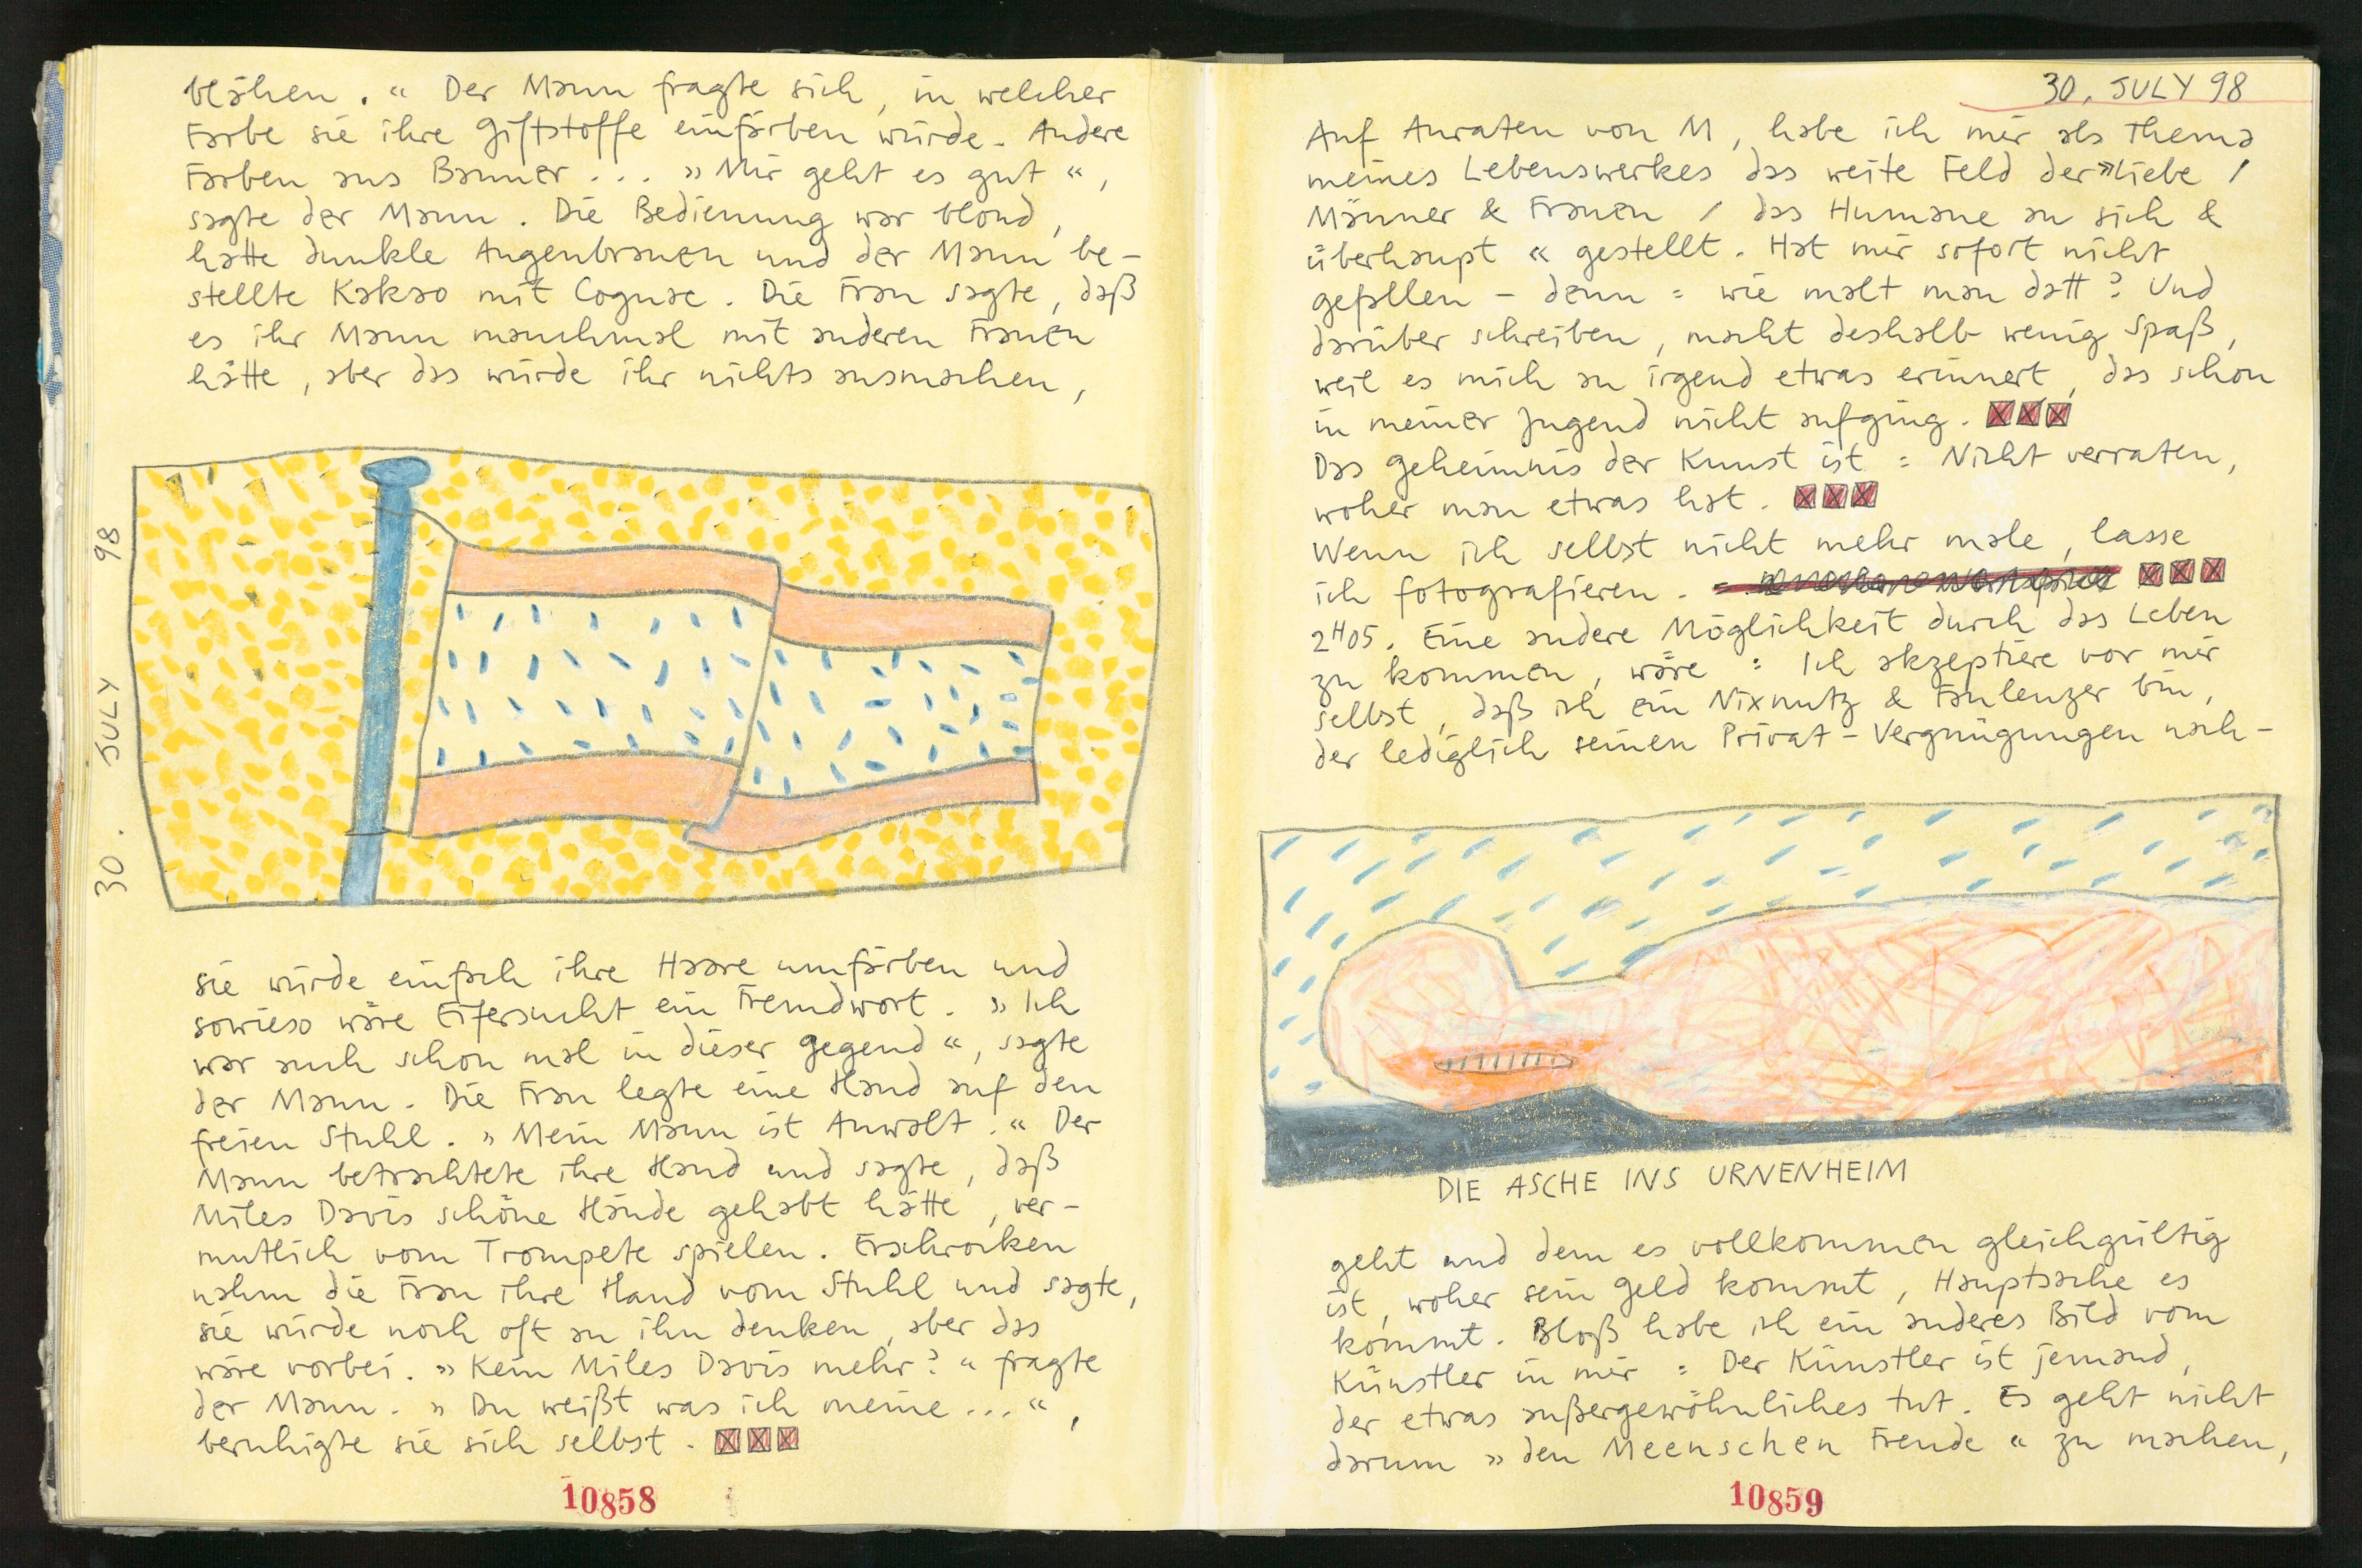 blähen. “ Der Mann fragte sich, in welcher
Farbe sie ihre Giftstoffe einfärben würde. Andere
Farben aus Banner ... » Mir geht es gut “,
sagte der Mann. Die Bedienung war blond,
hatte dunkle Augenbrauen und der Mann be-
stellte Kakao mit Cognac. Die Frau sagte, daß
es ihr Mann manchmal mit anderen Frauen
hätte, aber das würde ihr nichts ausmachen,
30. JULY 98
sie würde einfach ihre Haare umfärben und
sowieso wäre Eifersucht ein Fremdwort. » Ich
war auch schon mal in dieser Gegend “, sagte
der Mann. Die Frau legte eine Hand auf den
freien Stuhl. » Mein Mann ist Anwalt. “ Der
Mann betrachtete ihre Hand und sagte, daß
Miles Davis schöne Hände gehabt hätte, ver-
mutlich vom Trompete spielen. Erschrocken
nahm die Frau ihre Hand vom Stuhl und sagte,
sie würde noch oft an ihn denken, aber das
wäre vorbei. » Kein Miles Davis mehr? “ fragte
der Mann. » Du weißt was ich meine ... “,
beruhigte sie sich selbst.
10858
30. JULY 98
Auf Anraten von M, habe ich mir als Thema
meines Lebenswerkes das weite Feld der » Liebe /
Männer & Frauen / das Humane an sich &
überhaupt “ gestellt. Hat mir sofort nicht
gefallen - denn = wie malt man datt? Und
darüber schreiben, macht deshalb wenig Spaß,
weil es mich an irgend etwas erinnert, das schon
in meiner Jugend nicht aufging.
Das Geheimnis der Kunst ist = Nicht verraten,
woher man etwas hat.
Wenn ich selbst nicht mehr male, lasse
ich fotografieren.
2H05. Eine andere Möglichkeit durch das Leben
zu kommen, wäre = Ich akzeptiere vor mir
selbst, daß ich ein Nixnutz & Faulenzer bin,
der lediglich seinen Privat-Vergnügungen nach-
DIE ASCHE INS URNENHEIM
geht und dem es vollkommen gleichgültig
ist, woher sein Geld kommt, Hauptsache es
kommt. Bloß habe ich ein anderes Bild vom
Künstler in mir = Der Künstler ist jemand,
der etwas außergewöhnliches tut. Es geht nicht
darum » den Meenschen Freude “ zu machen,
10859